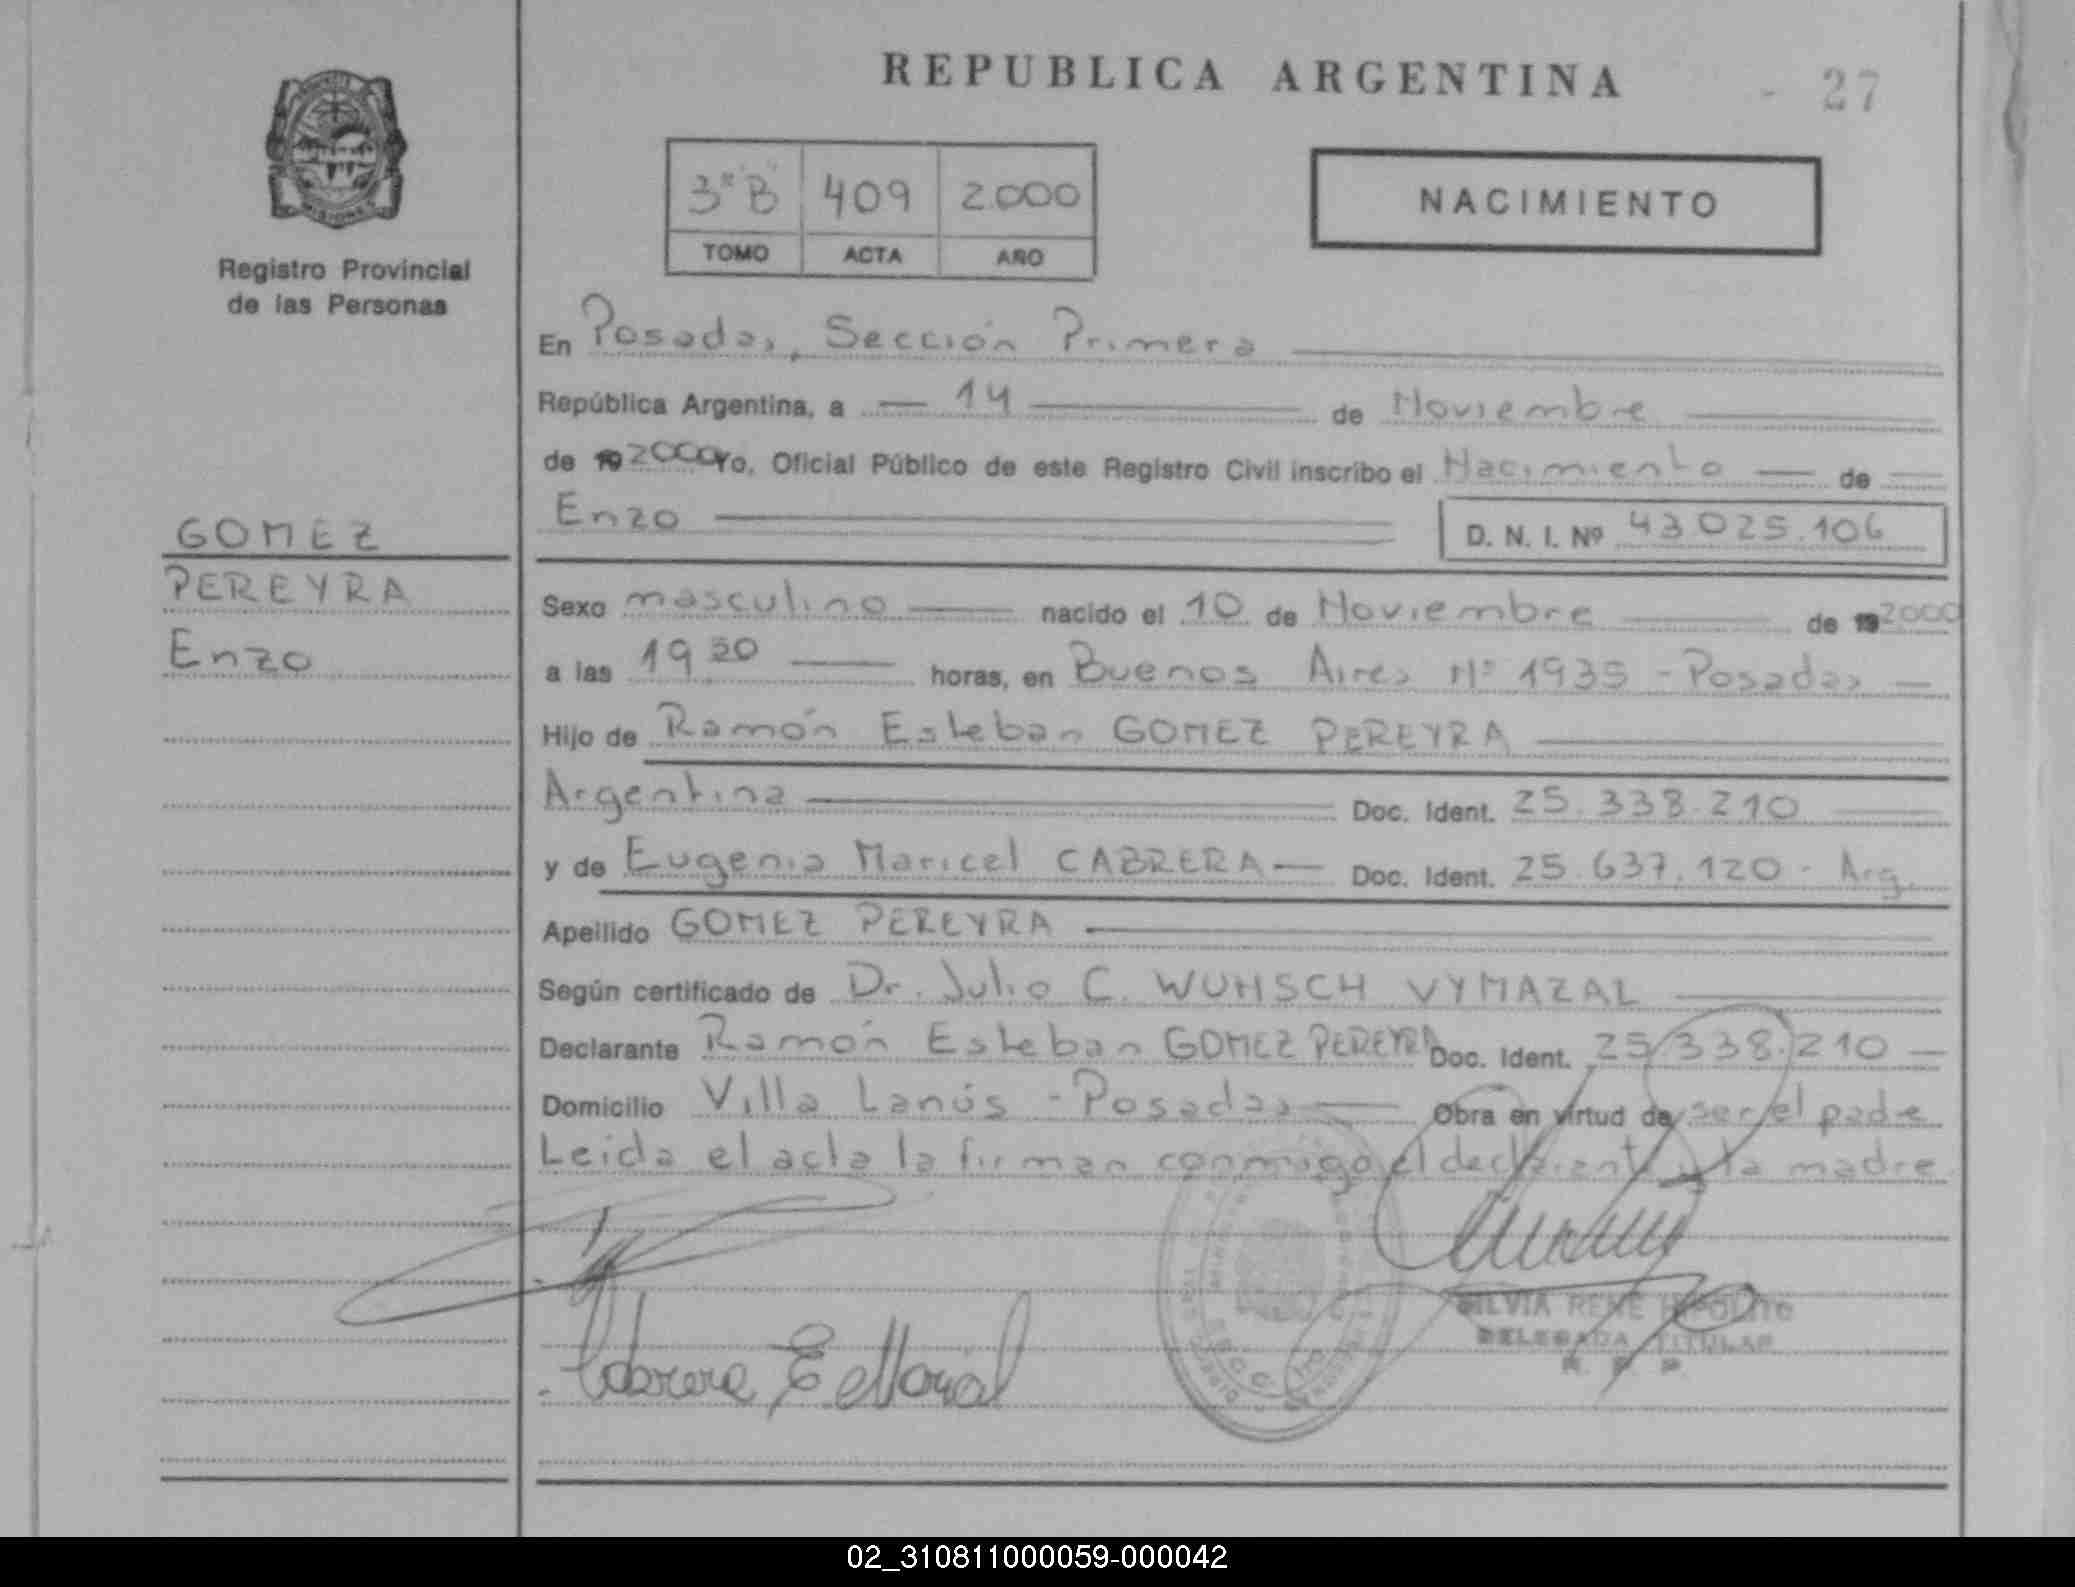 REPUBLICA ARGENTINA
27
Registro Provincial
de las Personas
3º "B" 409 2.000
TOMO ACTA AÑO
NACIMIENTO
En Posadas, Sección Primera
República Argentina, a 14 de Noviembre
de 192000 Yo, Oficial Público de este Registro Civil inscribo el Nacimiento de
Enzo D. N. I. Nº 43.025.106
GOMEZ
PEREYRA
Enzo
Sexo masculino nacido el 10 de Noviembre de 192000
a las 19 20 horas, en Buenos Aires Nº 1935 - Posadas
Hijo de Ramón Esteban GOMEZ PEREYRA
Argentina Doc. Ident. 25.338.210
y de Eugenia Maricel CABRERA Doc. Ident. 25.637.120 - Arg.
Apellido GOMEZ PEREYRA
Según certificado de Dr. Julio C. WUNSCH VYMAZAL
Declarante Ramón Esteban GOMEZ PEREYRA Doc. Ident. 25.338.210
Domicilio Villa Lanús - Posadas Obra en virtud de ser el padre
Leida el acta la firman conmigo el declarante y la madre
SILVIA RENE HIPOLITO
DELEGADA TITULAR
R. P. P.
Cabrera E Maricel
02_310811000059-000042